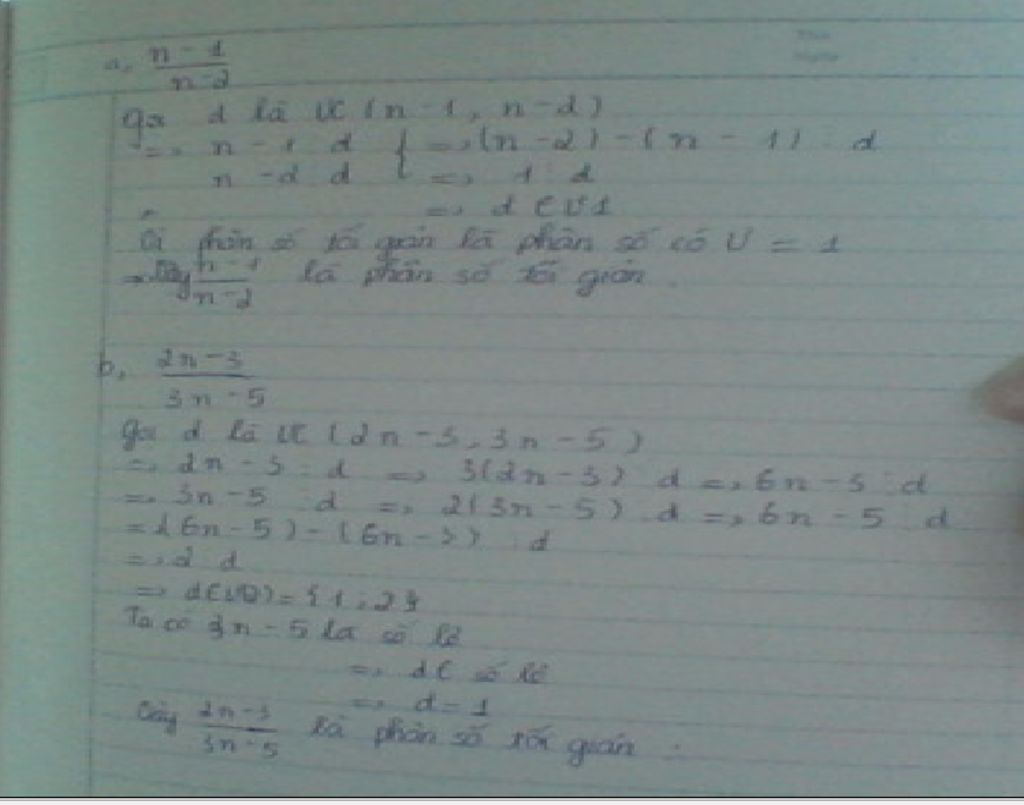 a, n - 1 / n - 2
Gọi d là ƯC (n - 1, n - 2)
=> n - 1 ⋮ d } => (n - 2) - (n - 1) ⋮ d
n - 2 ⋮ d } => 1 ⋮ d
=> d ∈ Ư1
phân số tối giản là phân số có Ư = 1
=> Vậy n - 1 / n - 2 là phân số tối giản.
b, 2n - 3 / 3n - 5
Gọi d là ƯC (2n - 3, 3n - 5)
=> 2n - 3 ⋮ d => 3(2n - 3) ⋮ d => 6n - 3 ⋮ d
=> 3n - 5 ⋮ d => 2(3n - 5) ⋮ d => 6n - 5 ⋮ d
= (6n - 5) - (6n - 3) ⋮ d
=> 2 ⋮ d
=> d ∈ Ư(2) = {1; 2}
Ta có 3n - 5 là số lẻ
=> d ∈ số lẻ
=> d = 1
Vậy 2n - 3 / 3n - 5 là phân số tối giản.